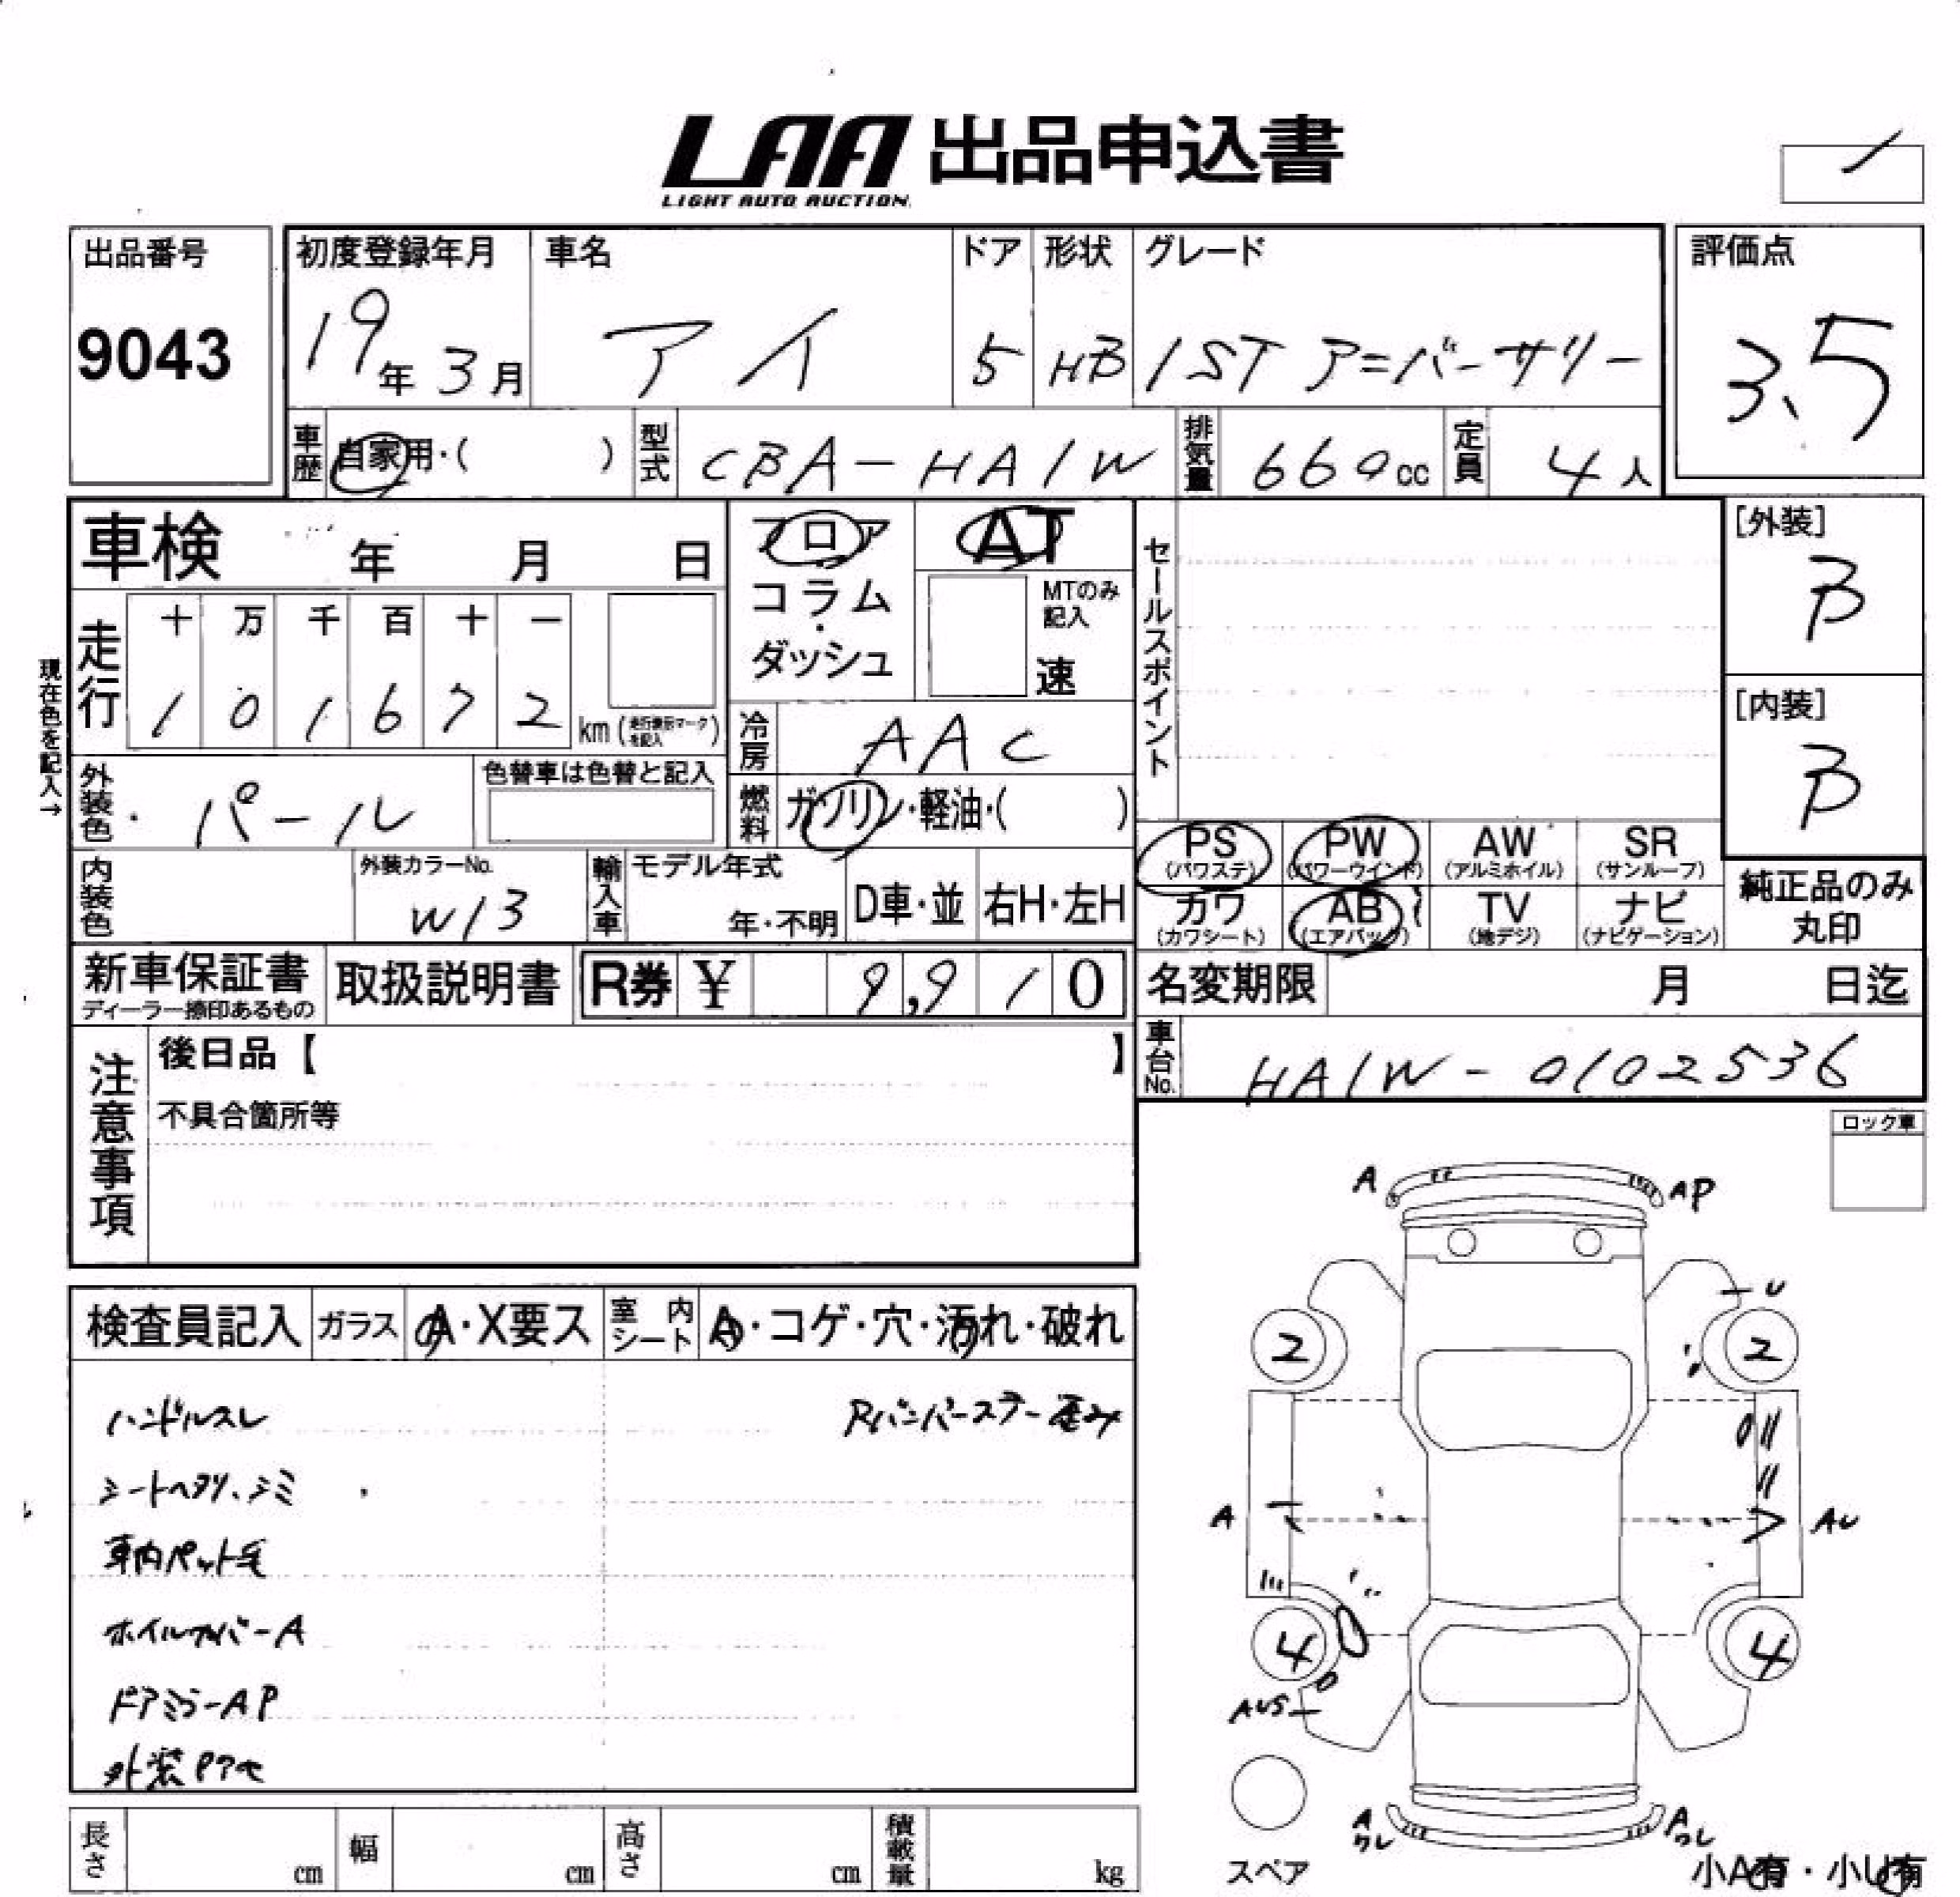 LAA 出品申込書
LIGHT AUTO AUCTION
出品番号
9043
初度登録年月
19年 3月
車名
アイ
ドア
5
形状
HB
グレード
1ST アニバーサリー
評価点
3.5
車歴
自家用・( )
型式
CBA-HA1W
排気量
660cc
定員
4人
車検 年 月 日
フロア
コラム
・
ダッシュ
AT
MTのみ
記入
速
セールスポイント
[外装]
B
[内装]
B
現在色を記入→
走行
十 万 千 百 十 一
1 0 1 6 7 2 km (走行換形マークを記入)
冷房
AAC
外装色
パール
色替車は色替と記入
燃料
ガソリン・軽油・( )
PS PW AW SR
(パワステ) (パワーウインド) (アルミホイル) (サンルーフ)
カワ AB TV ナビ
(カワシート) (エアバッグ) (地デジ) (ナビゲーション)
純正品のみ
丸印
内装色
外装カラーNo.
W13
輸入車
モデル年式
年・不明
D車・並
右H・左H
新車保証書
ディーラー捺印あるもの
取扱説明書
R券 ¥ 9,910
名変期限 月 日迄
注意事項
後日品【 】
不具合箇所等
車台No.
HA1W-0102536
ロック車
検査員記入
ガラス
A・X要ス
室内
シート
A・コゲ・穴・汚れ・破れ
ハンドルスレ
Rバンパーステー歪み
シートヘタリ、シミ
車内ペット毛
ホイルカバーA
ドアミラーAP
外装Pアセ
A
AP
U
2
2
A
AU
4
4
AUS
A
ワレ
A
ワレ
スペア
小A有・小U有
長さ cm
幅 cm
高さ cm
積載量 kg